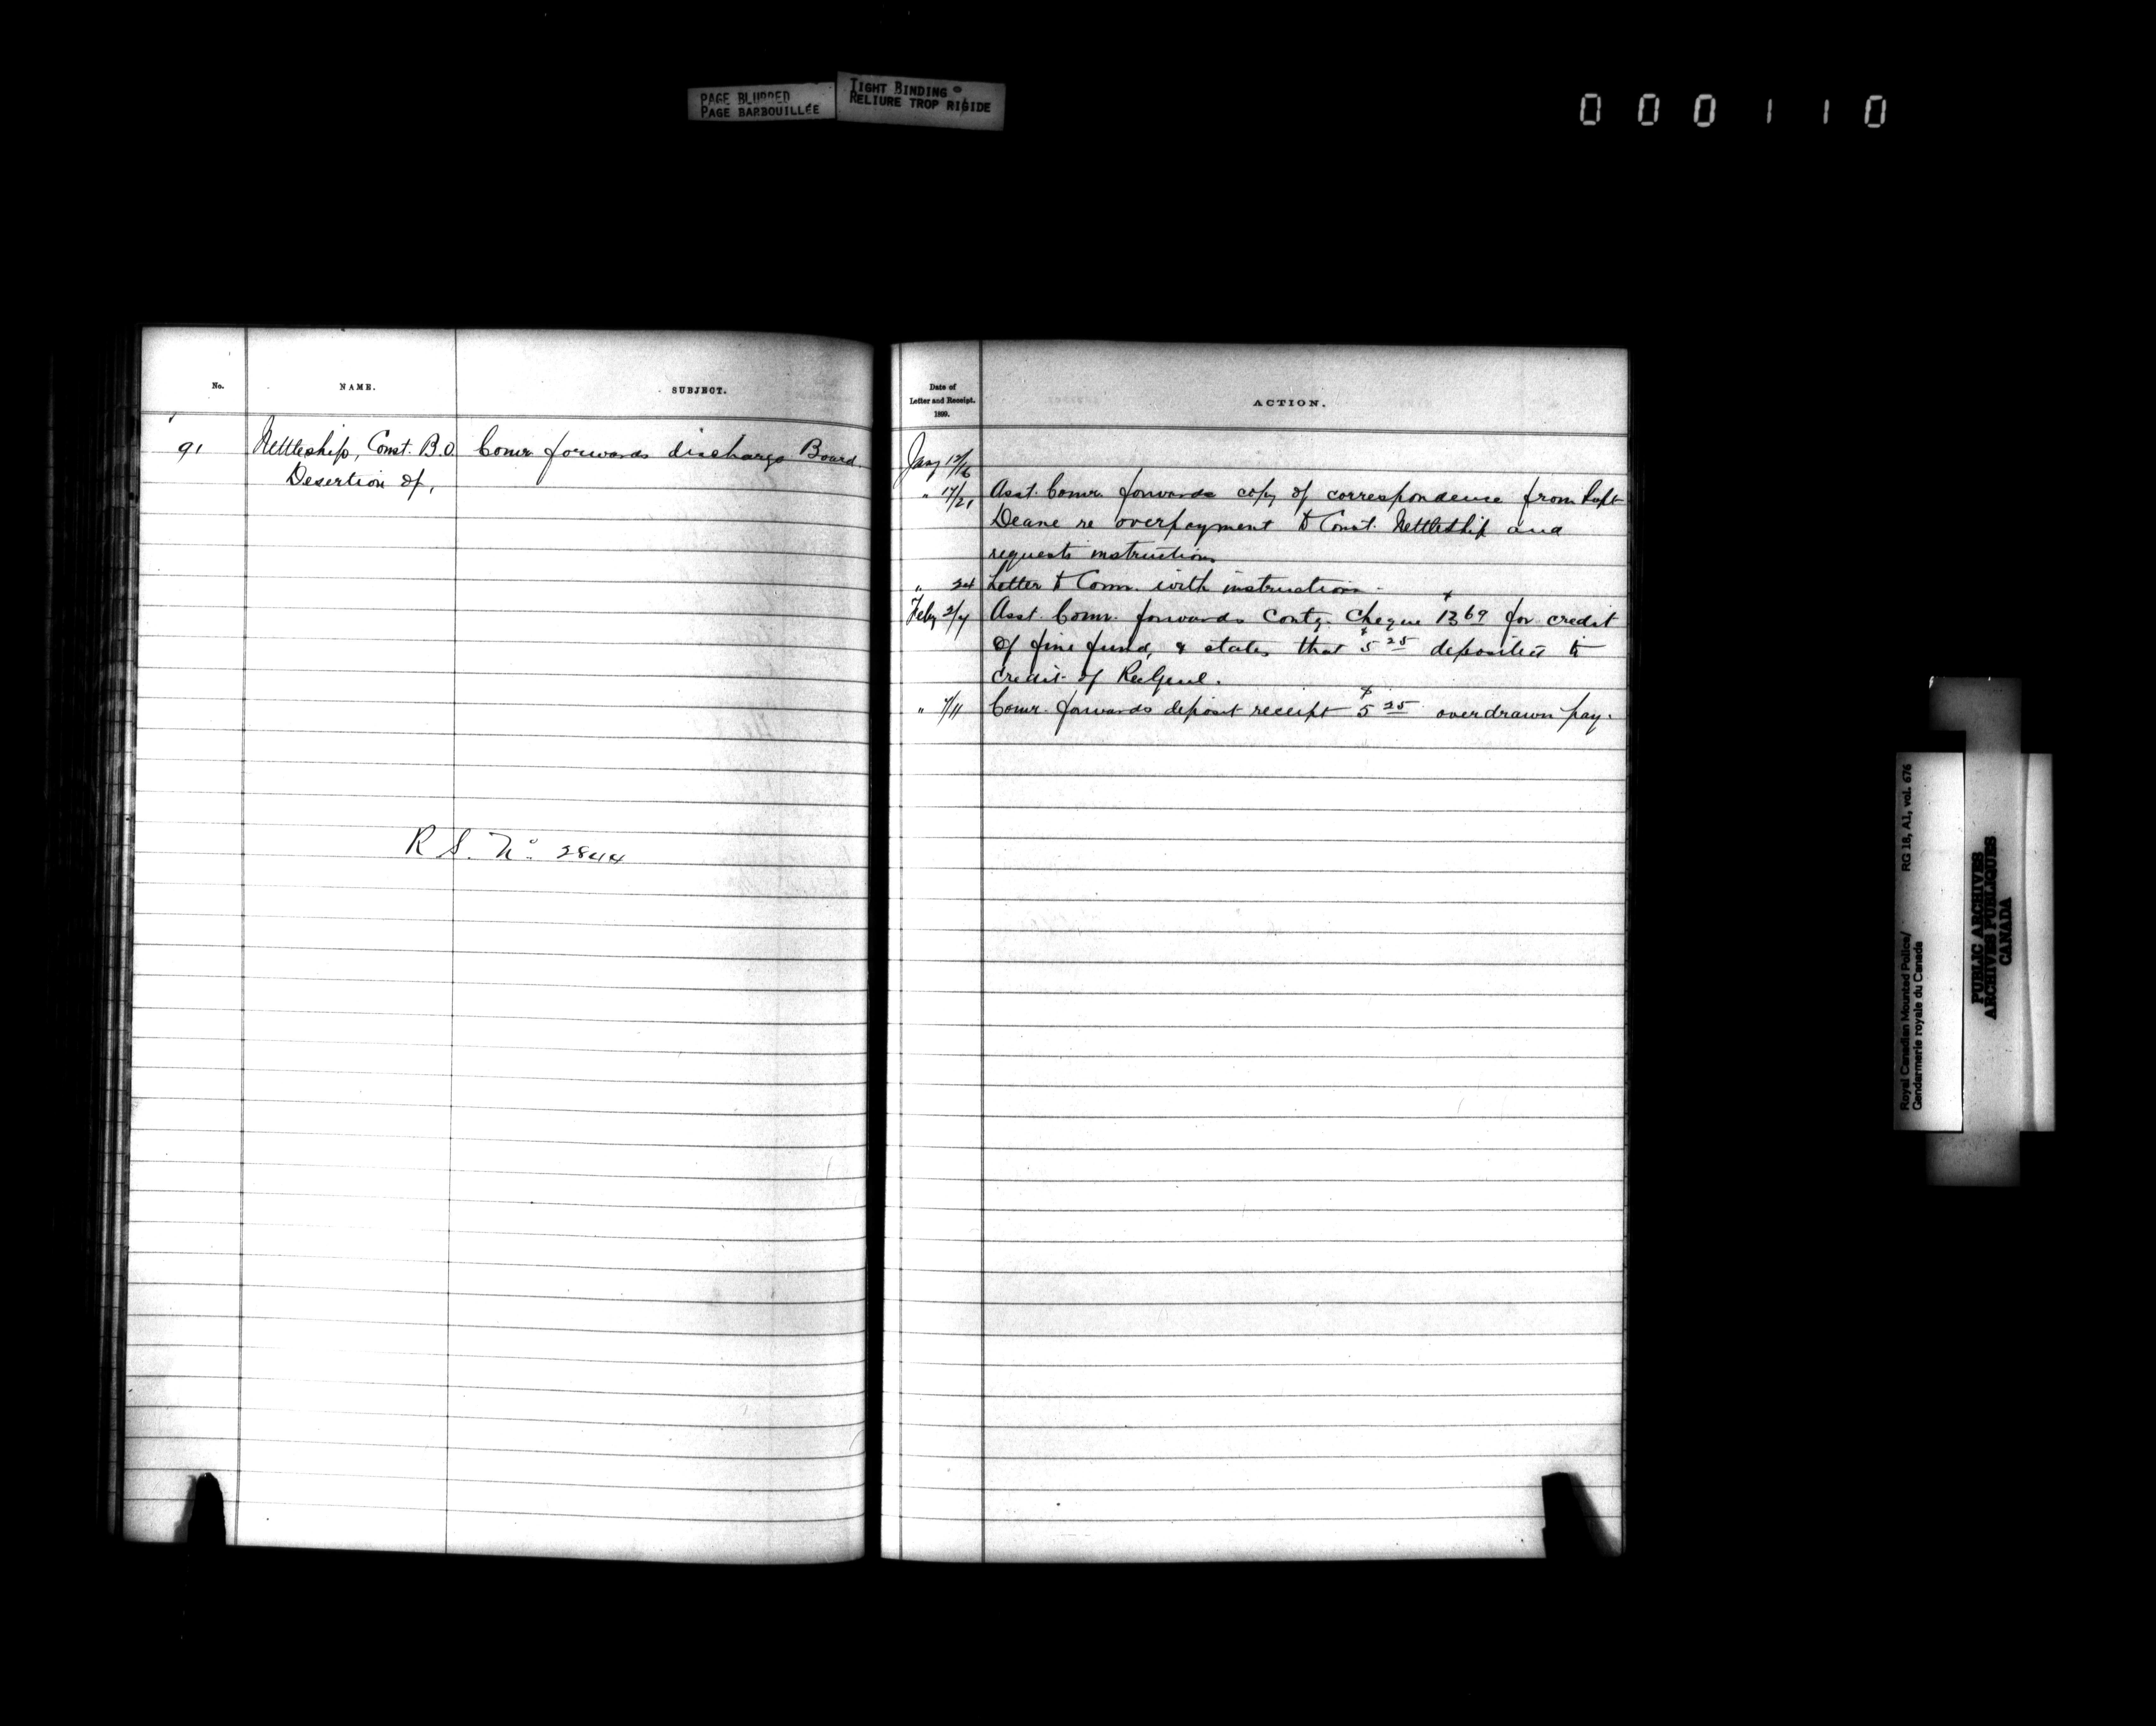 PAGE BLURRED
PAGE BARBOUILLÉE
TIGHT BINDING
RELIURE TROP RIGIDE
000110
No.
NAME.
SUBJECT.
91
Nettleship, Const. B.O.
Desertion of,
Comr. forwards discharge Board.
R S. No. 2844
Date of
Letter and Receipt.
1899.
ACTION.
Jany 12/16
" 17/21 Asst. Comr. forwards copy of correspondence from Supt
Deane re overpayment to Const. Nettleship and
requests instructions
" 24 Letter to Comr. with instructions.
Feby 2/7 Asst. Comr. forwards Contg. Cheque $13 69 for credit
of fine fund, & states that $5 25 deposited to
credit of Rec Genl.
" 7/11 Comr. forwards deposit receipt $5 25 overdrawn pay.
Royal Canadian Mounted Police/
Gendarmerie royale du Canada
RG 18, A1, vol. 676
PUBLIC ARCHIVES
ARCHIVES PUBLIQUES
CANADA